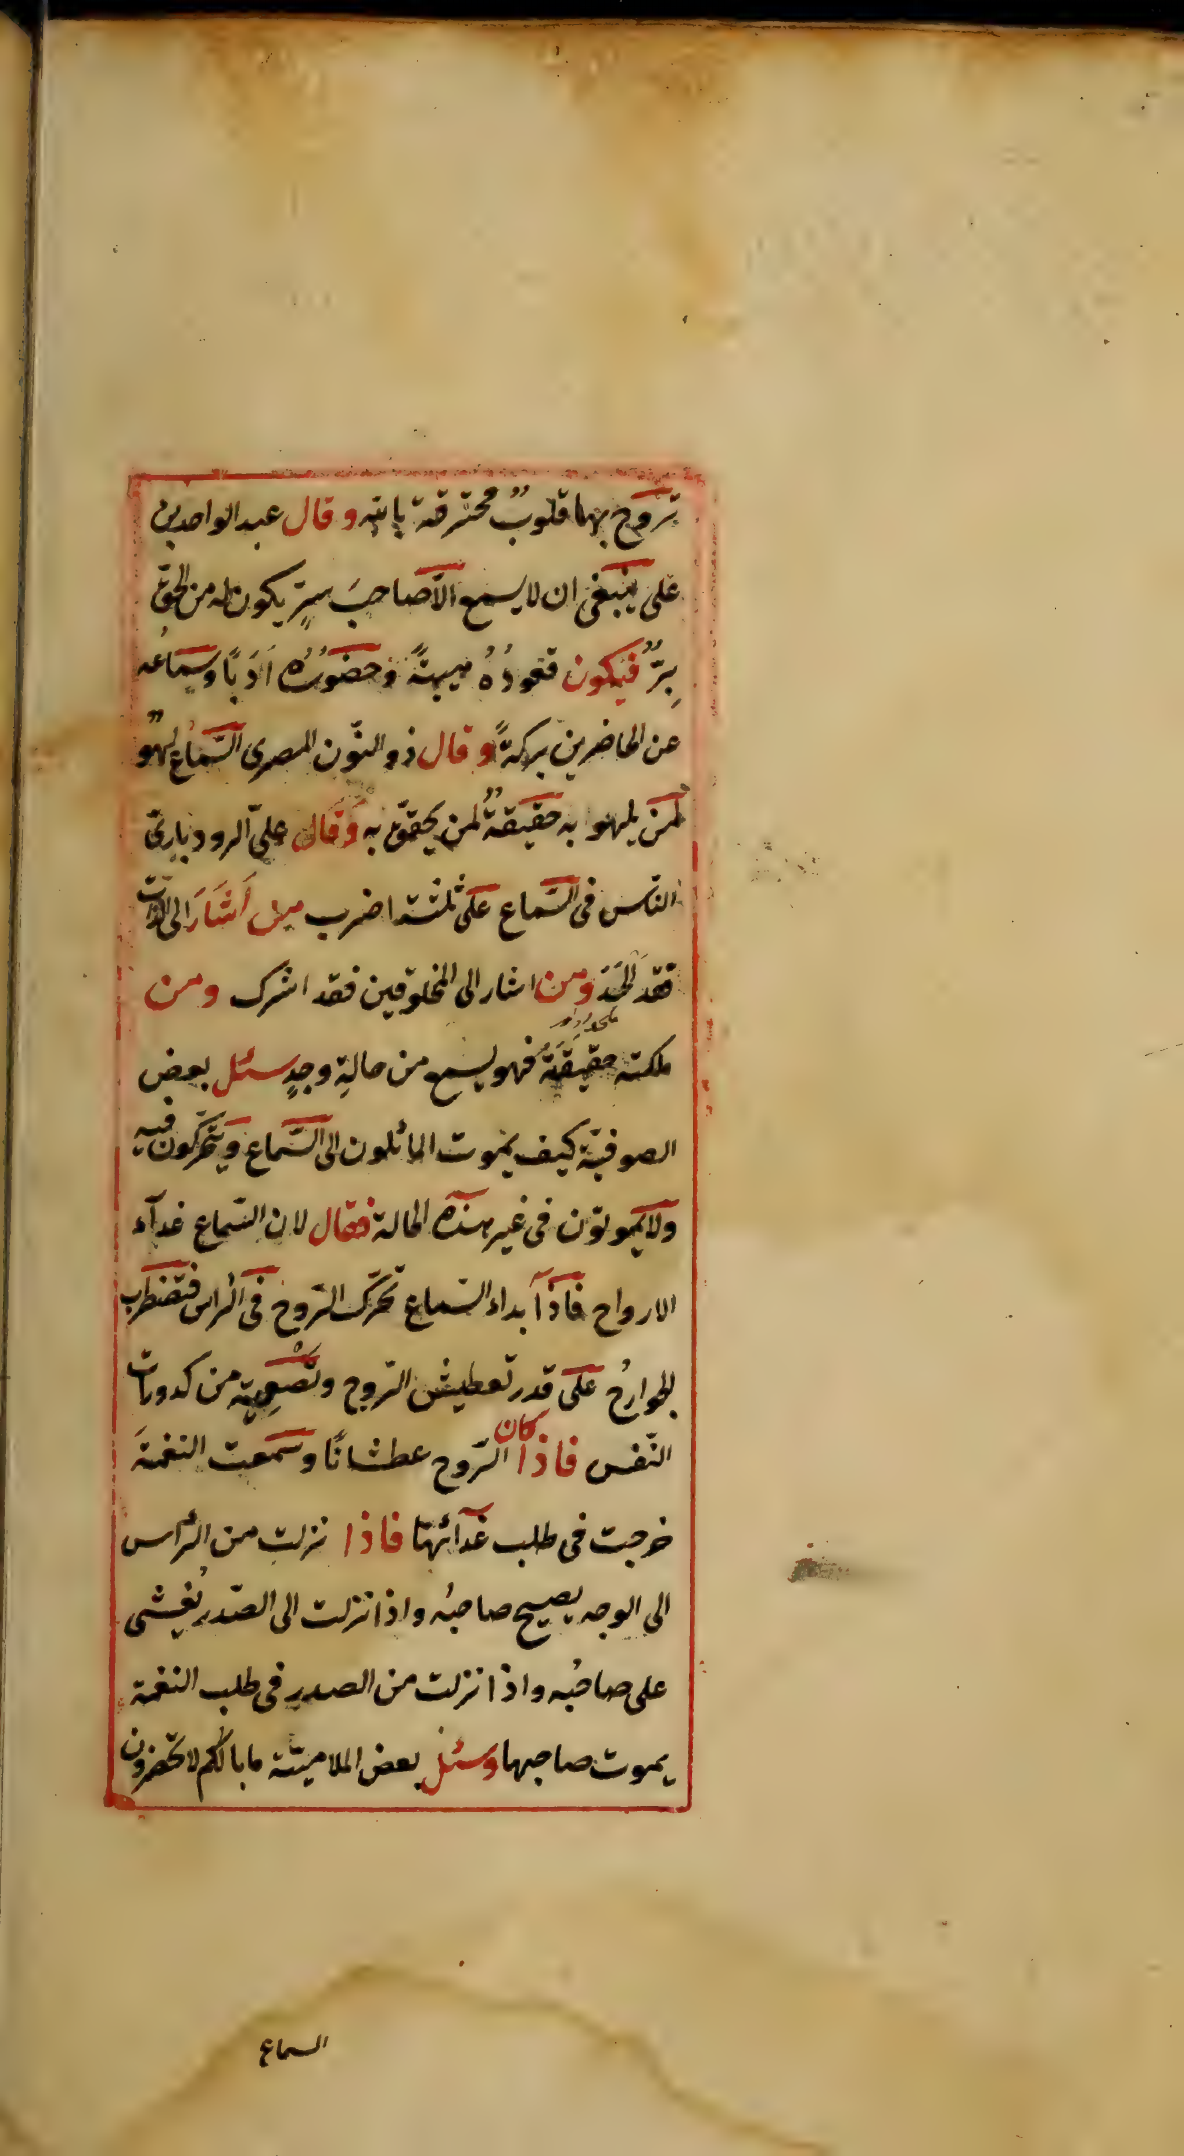 تروّح بها قلوبٌ محترقة بالله وقال عبد الواحد بن
على ينبغى ان لا يسمع الّا صاحبَ سِرٍّ يكون له من الحق
بِرٌّ فيكون قعودُهُ هيبةً وحضورُه اَدَبًا وسماعُه
عن الحاضرين بركةً وقال ذو النّون المصرى السّماعُ لهوٌ
لمن يلهوا به حقيقةٌ لمن يحقّق به وقال علىّ الرودبارىّ
النّاس فى السّماع على ثلثة اضرب من اَشَارَ الى الذّات
فقد اَلحَدَ ومن اشار الى المخلوقين فقد اشرك ومن
ملكته حقيقَةٌ فهو يسمع من حالةِ وجدٍ سئل بعض
الصوفيّة كيف يموت المائلون الى السّماع ويتحرّكون فيه
ولا يموتون فى غير هذه الحالة فقال لان السّماع غدآء
الارواح فاذآ بداء السّماع تحرّك الرّوح فى الراس فتضطرب
الجوارحُ على قدر تعطيش الرّوح وتصفيته من كدورات
النّفس فاذا كان الرّوح عطشانًا وسمعت النغمةَ
خرجت فى طلب غدآئها فاذا نزلت من الراس
الى الوجه يصيح صاحبُه واذا نزلت الى الصّدر يُغشى
على صاحبُه واذا نزلت من الصدر فى طلب النغمة
يموت صاحبها وسئل بعض الملاميّة ما بالكم لا تحضرون
السماع